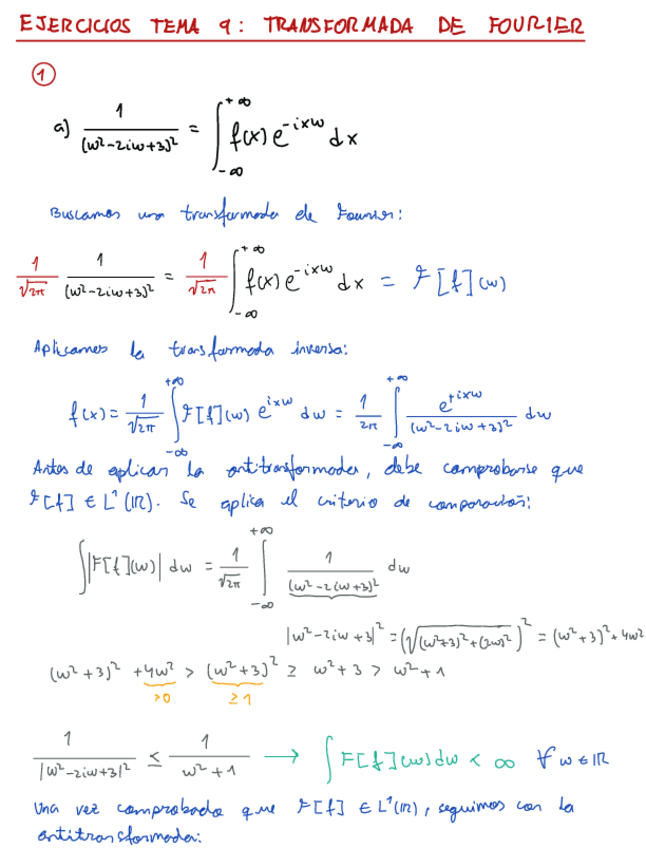 EJERCICIOS TEMA 9: TRANSFORMADA DE FOURIER
①
a) 1/(w²-2iw+3)² = ∫_{-∞}^{+∞} f(x) e^{-ixw} dx
Buscamos una transformada de Fourier:
1/√2π 1/(w²-2iw+3)² = 1/√2π ∫_{-∞}^{+∞} f(x) e^{-ixw} dx = F[f](w)
Aplicamos la transformada inversa:
f(x) = 1/√2π ∫_{-∞}^{+∞} F[f](w) e^{ixw} dw = 1/2π ∫_{-∞}^{+∞} e^{+ixw}/(w²-2iw+3)² dw
Antes de aplicar la antitransformada, debe comprobarse que
F[f] ∈ L¹(ℝ). Se aplica el criterio de comparación:
∫|F[f](w)| dw = 1/√2π ∫_{-∞}^{+∞} 1/(w²-2iw+3)² dw
|w²-2iw+3|² = (√((w²+3)²+(2w)²))² = (w²+3)²+4w²
(w²+3)² + 4w² > (w²+3)² ≥ w²+3 > w²+1
>0 ≥1
1/|w²-2iw+3|² ≤ 1/(w²+1) → ∫ F[f](w) dw < ∞ ∀ w ∈ ℝ
Una vez comprobado que F[f] ∈ L¹(ℝ), seguimos con la
antitransformada: